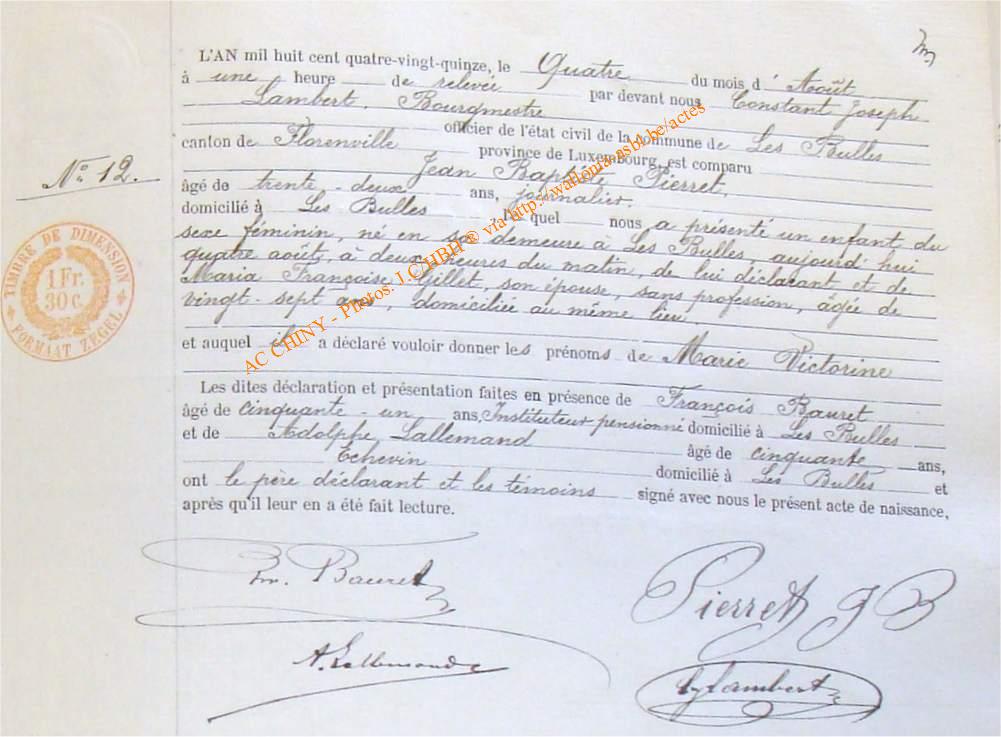 L'AN mil huit cent quatre-vingt-quinze, le Quatre du mois d' Août
à une heure de relevée par devant nous Constant Joseph
Lambert, Bourgmestre
officier de l'état civil de la commune de Les Bulles
canton de Florenville province de Luxembourg, est comparu
Jean Baptiste Pierret,
âgé de trente-deux ans, journalier,
domicilié à Les Bulles lequel nous a présenté un enfant du
sexe féminin, né en sa demeure à Les Bulles, aujourd'hui
quatre août, à deux heures du matin, de lui déclarant et de
Maria Françoise Gillet, son épouse, sans profession, âgée de
vingt-sept ans, domiciliée au même lieu,
et auquel il a déclaré vouloir donner les prénoms de Marie Victorine
Les dites déclaration et présentation faites en présence de François Bauret
âgé de cinquante-un ans, Instituteur pensionné domicilié à Les Bulles
et de Adolphe Lallemand âgé de cinquante ans,
Echevin domicilié à Les Bulles et
ont le père déclarant et les témoins signé avec nous le présent acte de naissance,
après qu'il leur en a été fait lecture.
N° 12.
TIMBRE DE DIMENSION
1 Fr.
30 c.
FORMAAT ZEGEL
AC CHINY - Photos: J.C HBH ® via http://wallonia.asbl.be/actes
Bauret
Pierret J B
A. Lallemand
Lambert